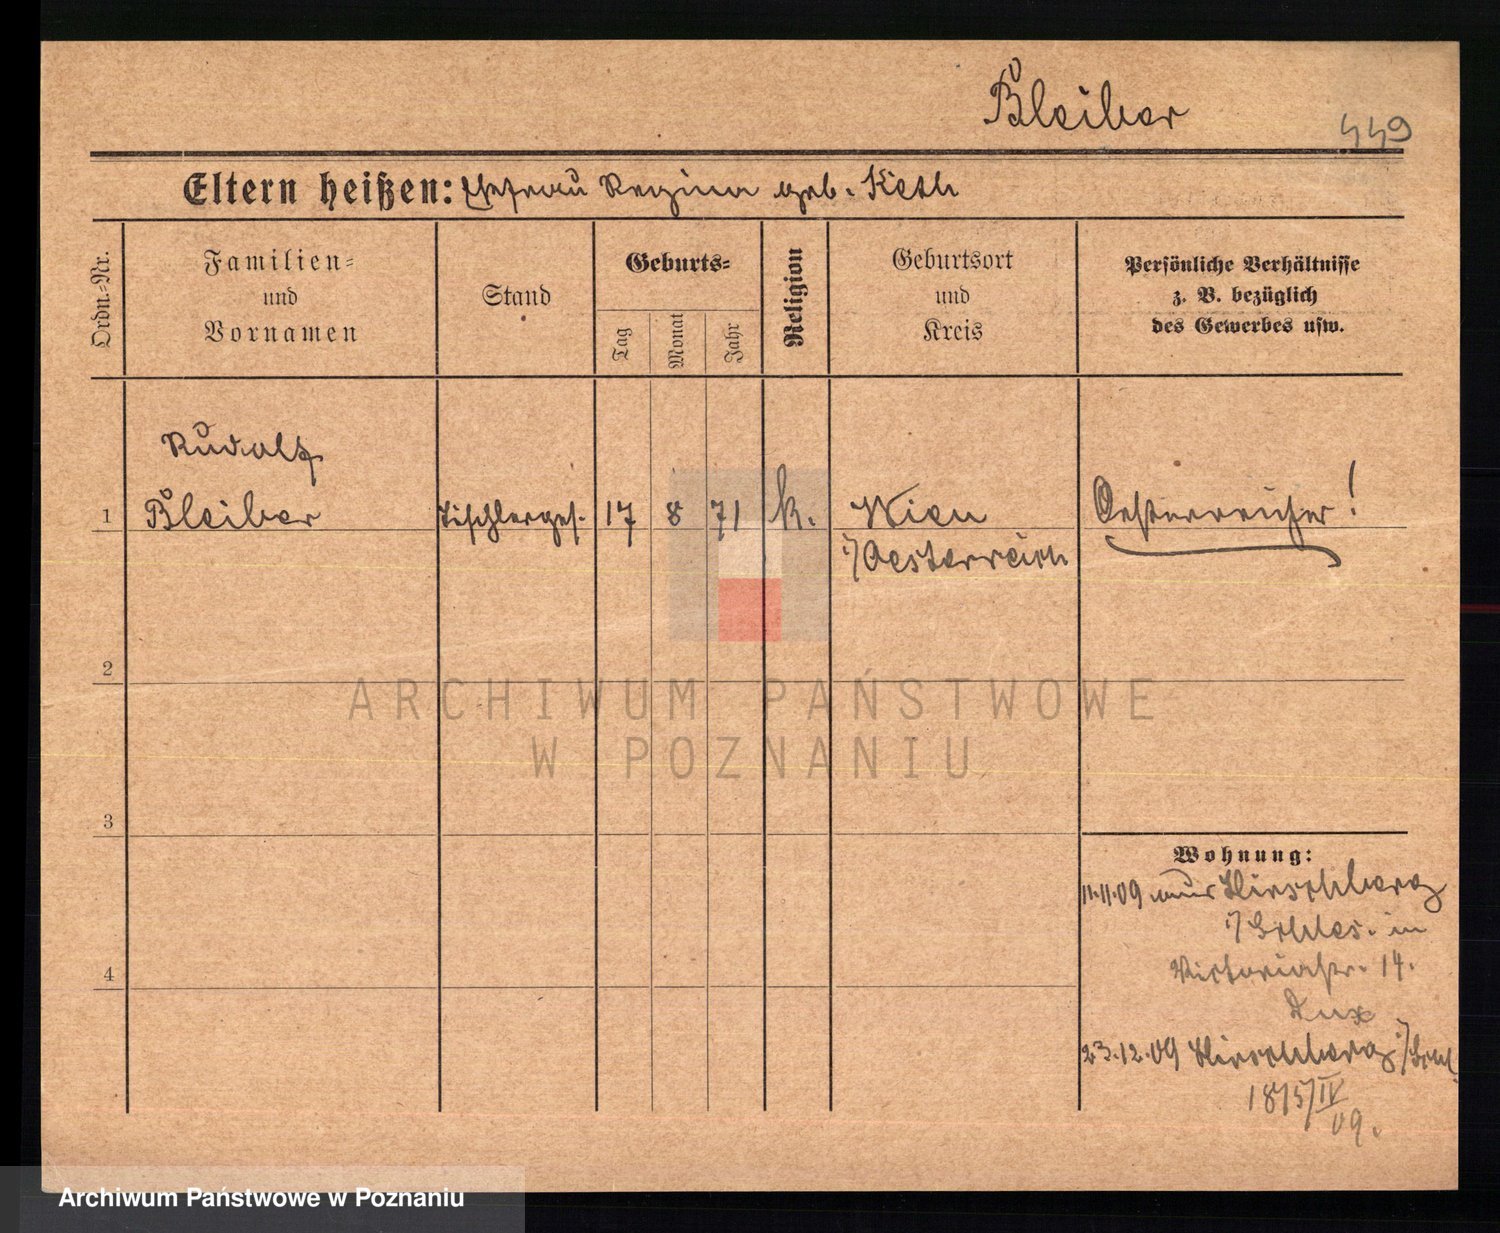 Bleiber
449
Eltern heißen: Ehefrau Regina geb. Keth
Ordn.-Nr.
Familien-
und
Vornamen
Stand
Geburts-
Tag
Monat
Jahr
Religion
Geburtsort
und
Kreis
Persönliche Verhältnisse
z. B. bezüglich
des Gewerbes usw.
Rudolf
1 Bleiber Tischlerges. 17 8 71 k. Wien Oesterreicher!
i/Oesterreich
2
ARCHIWUM PAŃSTWOWE
W POZNANIU
3
Wohnung:
11.11.09 aus Hirschberg
i/Schles. in
Victoriastr. 14.
4
Lux
23.12.09 Hirschberg i/Schl.
1875/IV
09.
Archiwum Państwowe w Poznaniu